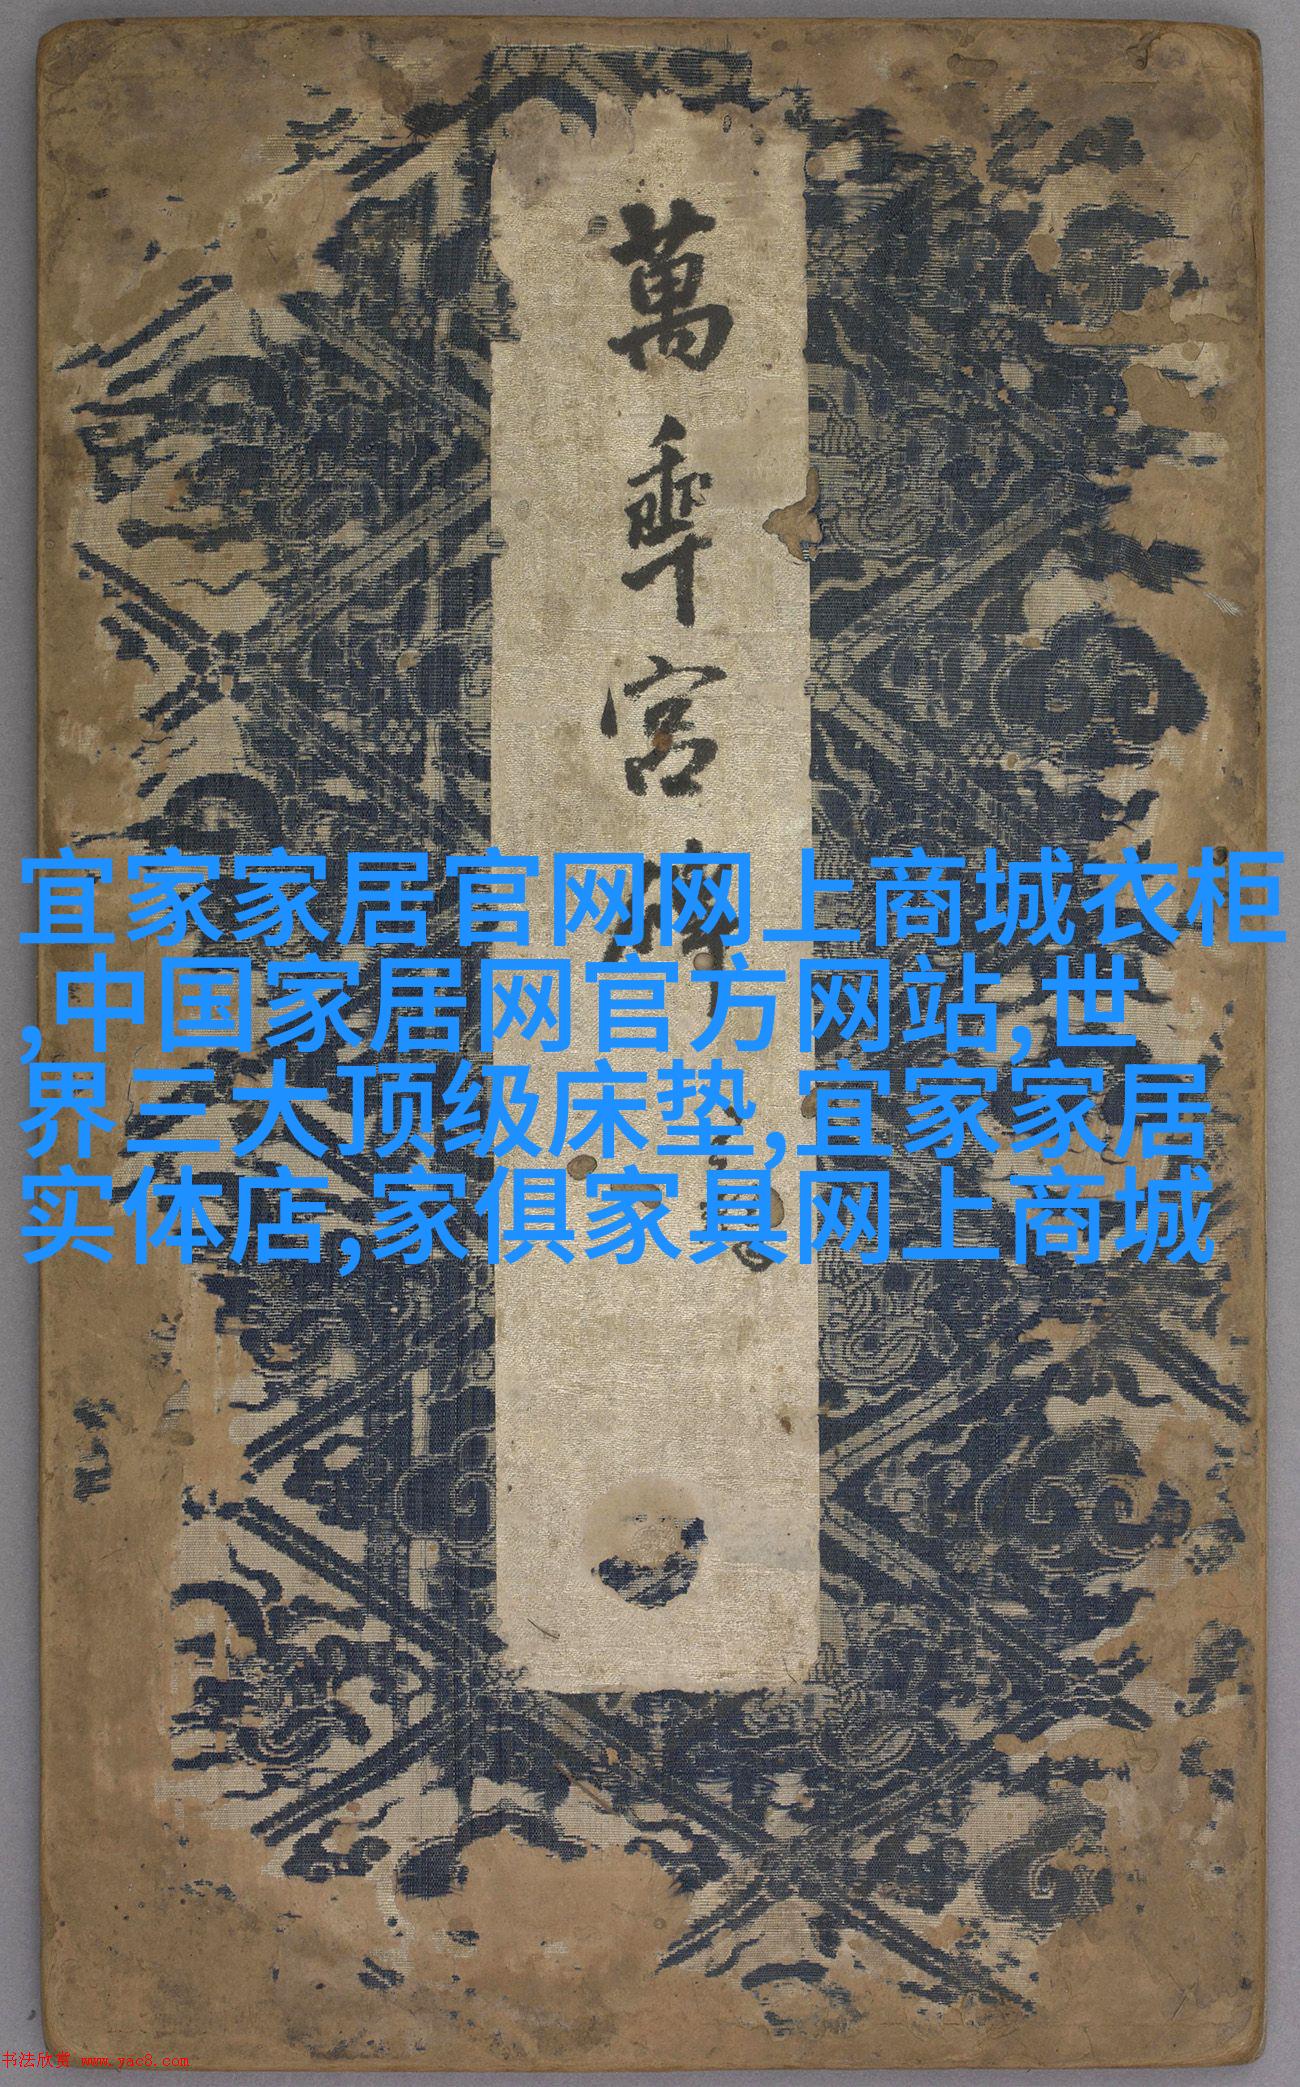 萬
年
宮
宜家家居官网网上商城衣柜
,中国家居网官方网站,世
界三大顶级床垫,宜家家居
实体店,家俱家具网上商城
书法欣赏 www.yac8.com